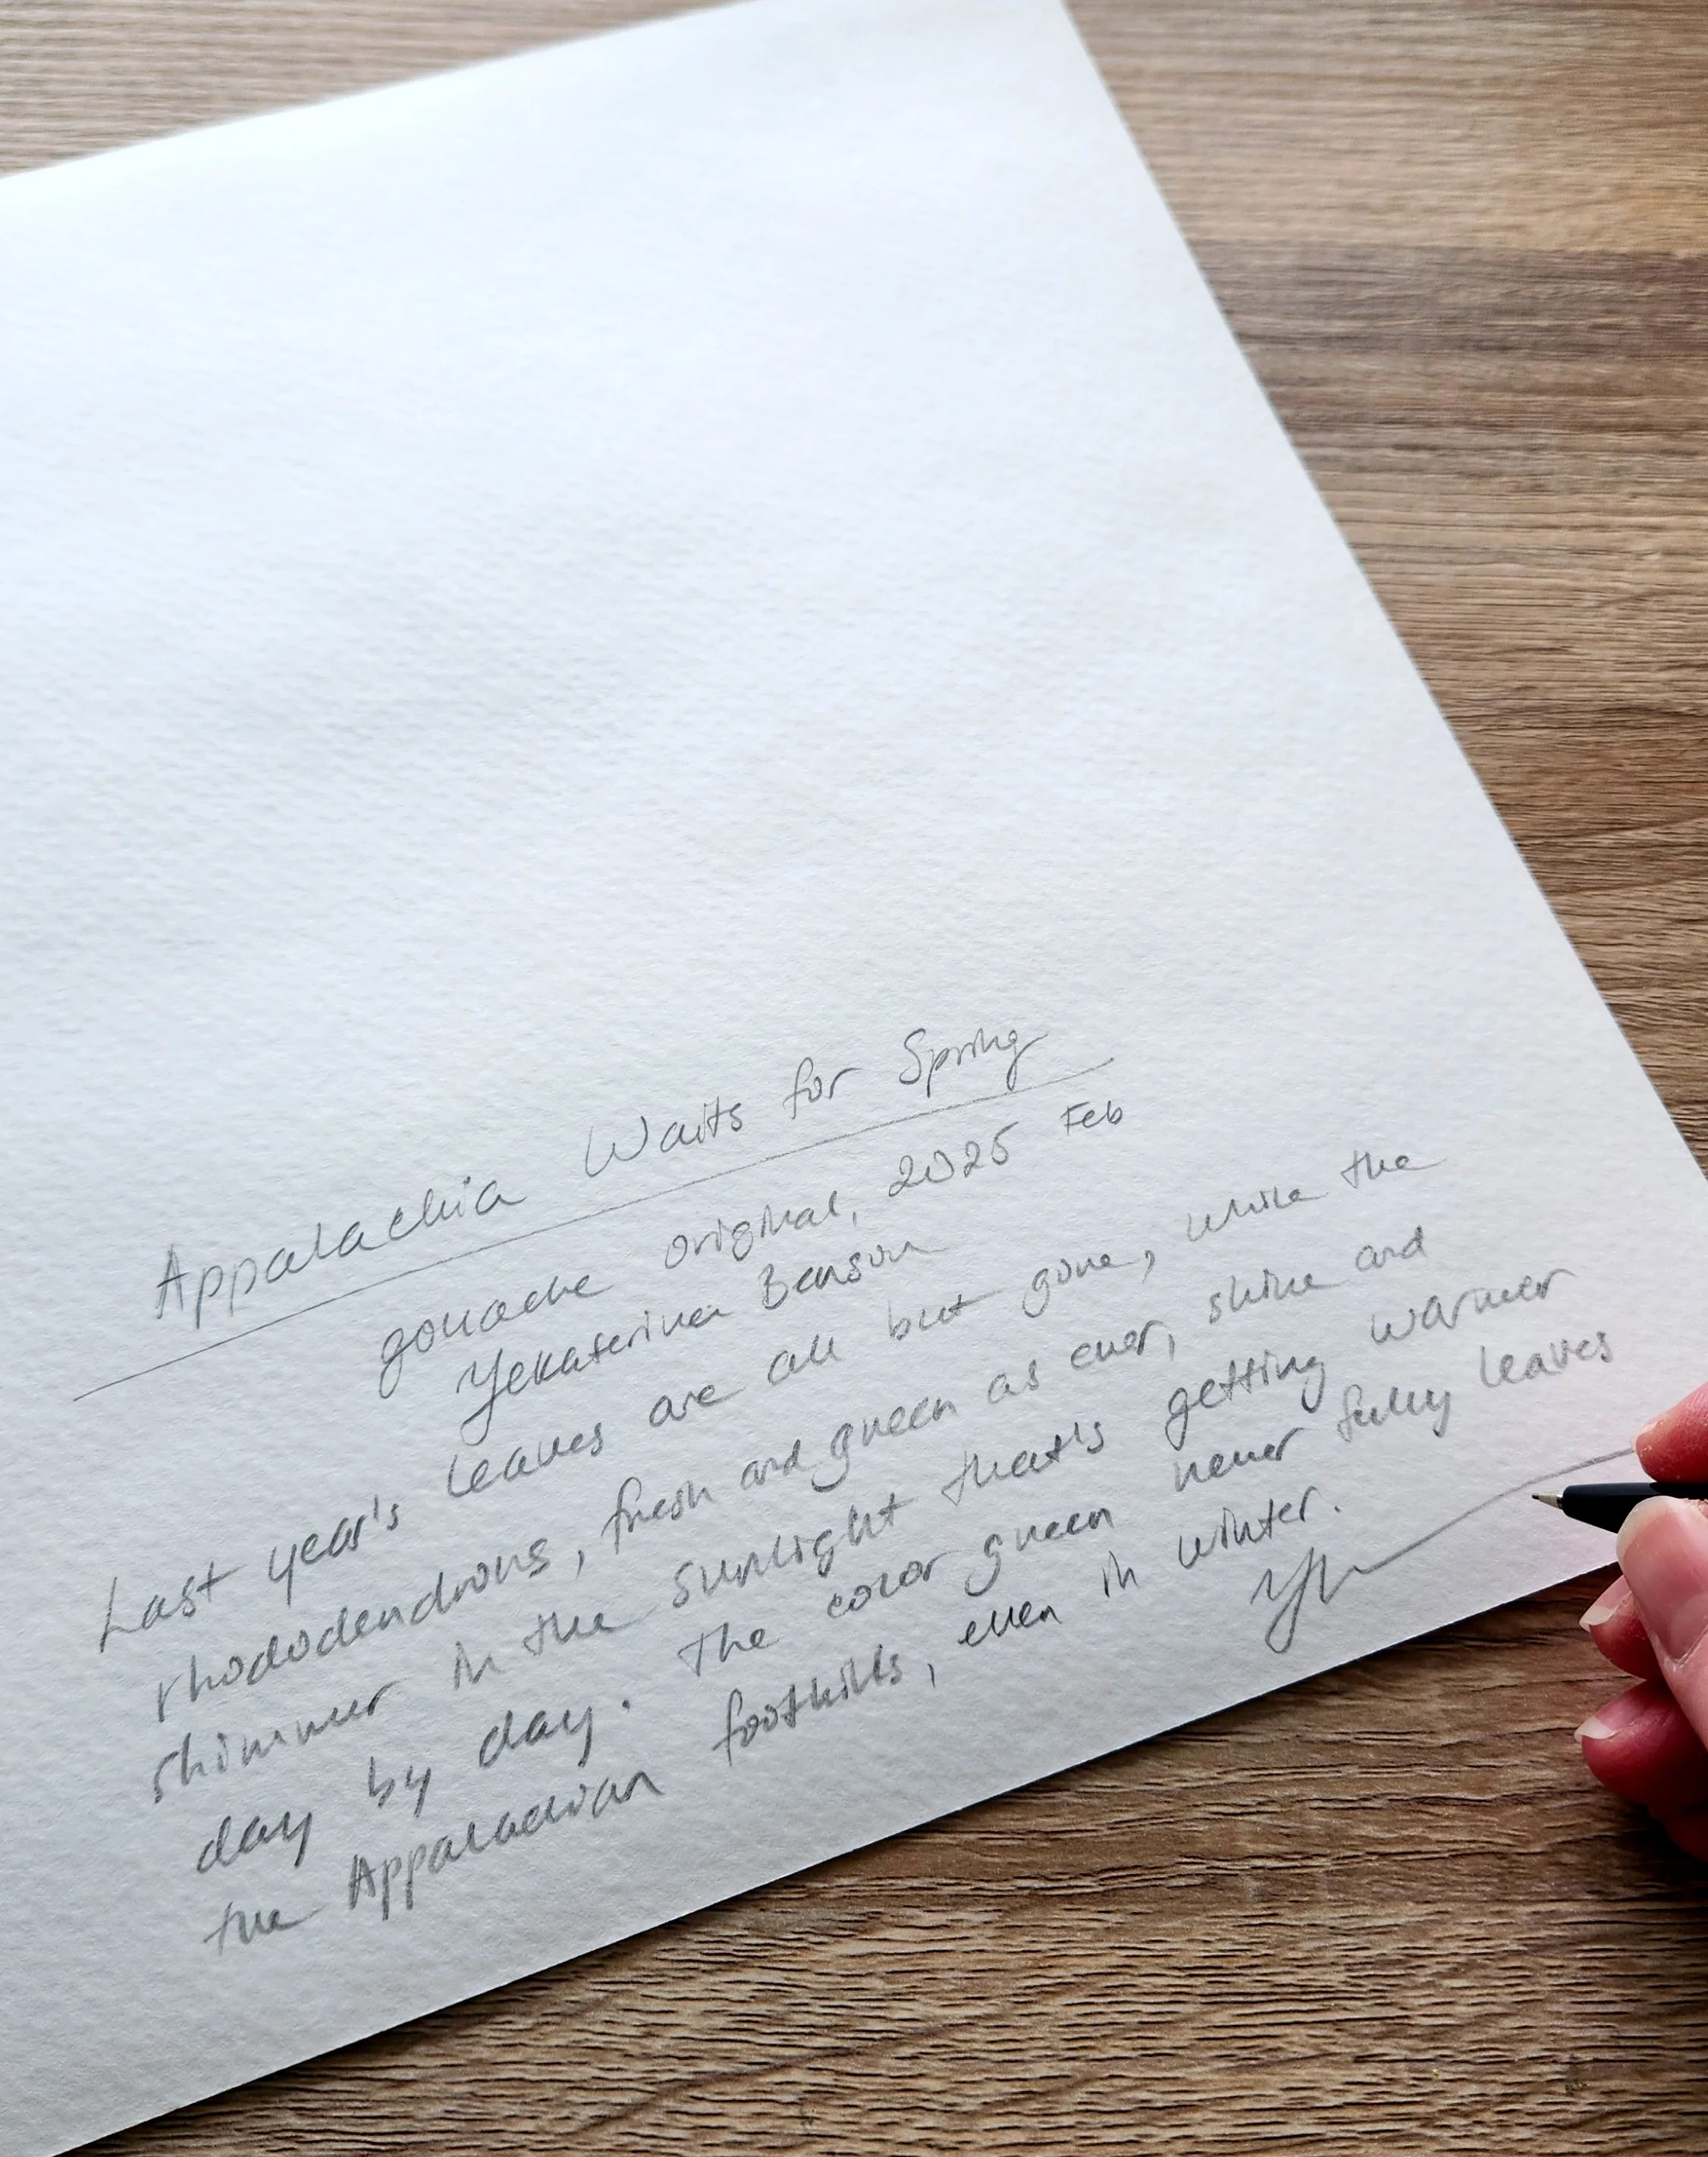 Appalachia Waits for Spring
gouache original, 2025 Feb
Yekaterina Benson
Last year's leaves are all but gone, while the
rhododendrons, fresh and green as ever, shine and
shimmer in the sunlight that's getting warmer
day by day. The color green never fully leaves
the Appalachian foothills, even in winter.